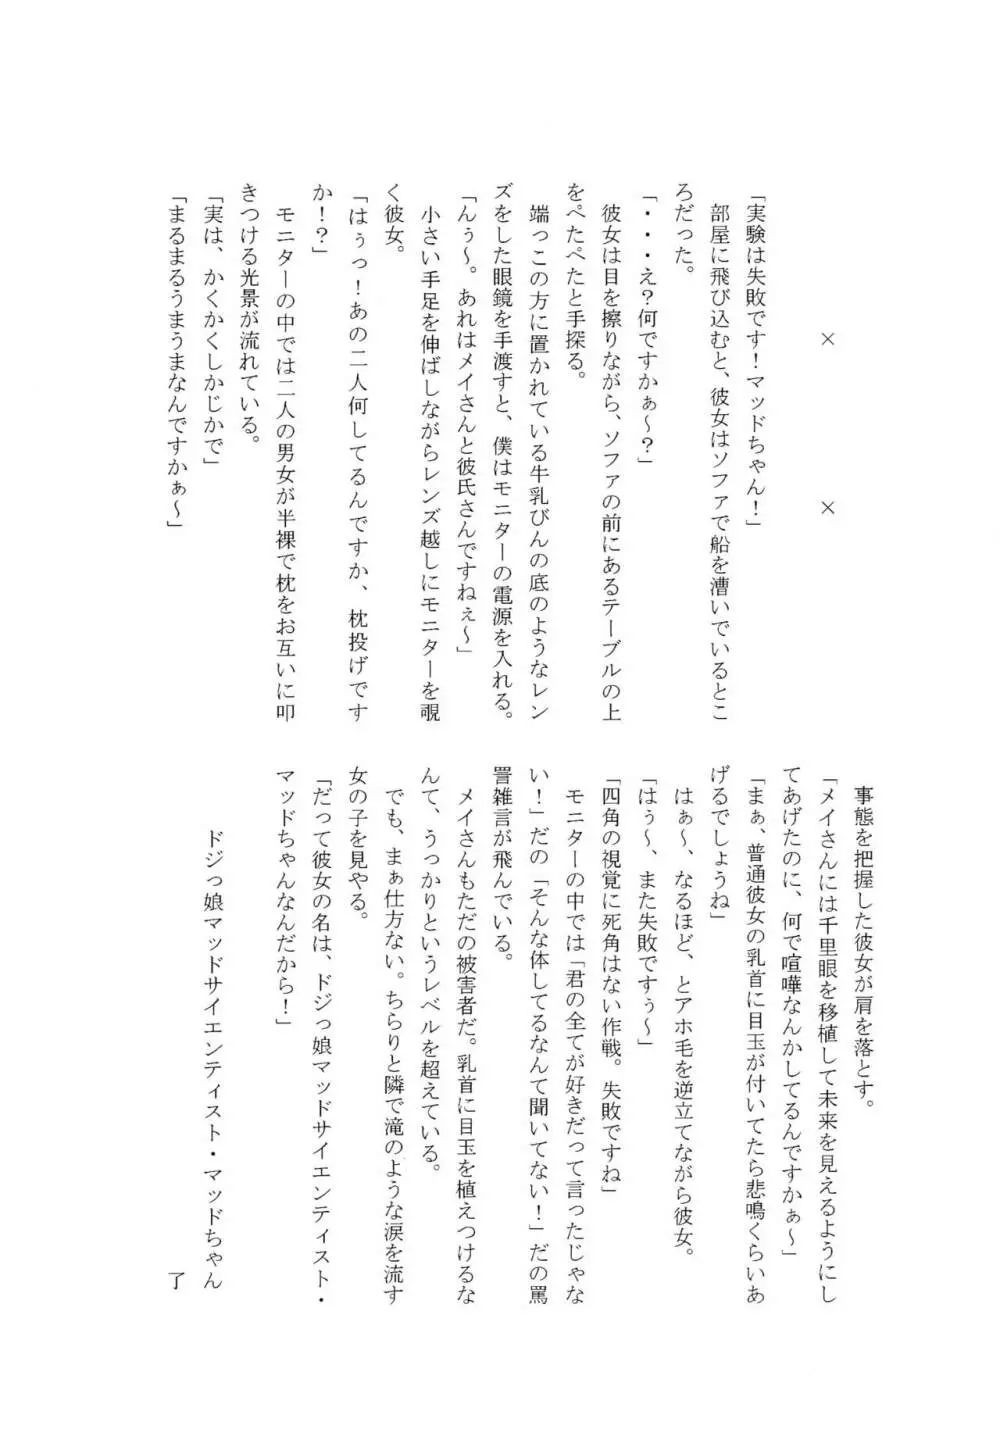 × ×
「実験は失敗です！マッドちゃん！」
部屋に飛び込むと、彼女はソファで船を漕いでいるとこ
ろだった。
「・・・え？何ですかぁ～？」
彼女は目を擦りながら、ソファの前にあるテーブルの上
をぺたぺたと手探る。
端っこの方に置かれている牛乳びんの底のようなレン
ズをした眼鏡を手渡すと、僕はモニターの電源を入れる。
「んぅ～。あれはメイさんと彼氏さんですねぇ～」
小さい手足を伸ばしながらレンズ越しにモニターを覗
く彼女。
「はぅっ！あの二人何してるんですか、枕投げです
か！？」
モニターの中では二人の男女が半裸で枕をお互いに叩
きつける光景が流れている。
「実は、かくかくしかじかで」
「まるまるうまうまなんですかぁ～」
事態を把握した彼女が肩を落とす。
「メイさんには千里眼を移植して未来を見えるようにし
てあげたのに、何で喧嘩なんかしてるんですかぁ～」
「まぁ、普通彼女の乳首に目玉が付いてたら悲鳴くらいあ
げるでしょうね」
はぁ～、なるほど、とアホ毛を逆立てながら彼女。
「はぅ～、また失敗ですぅ～」
「四角の視覚に死角はない作戦。失敗ですね」
モニターの中では「君の全てが好きだって言ったじゃな
い！」だの「そんな体してるなんて聞いてない！」だの罵
詈雑言が飛んでいる。
メイさんもただの被害者だ。乳首に目玉を植えつけるな
んて、うっかりというレベルを超えている。
でも、まぁ仕方ない。ちらりと隣で滝のような涙を流す
女の子を見やる。
「だって彼女の名は、ドジっ娘マッドサイエンティスト・
マッドちゃんなんだから！」
ドジっ娘マッドサイエンティスト・マッドちゃん
了